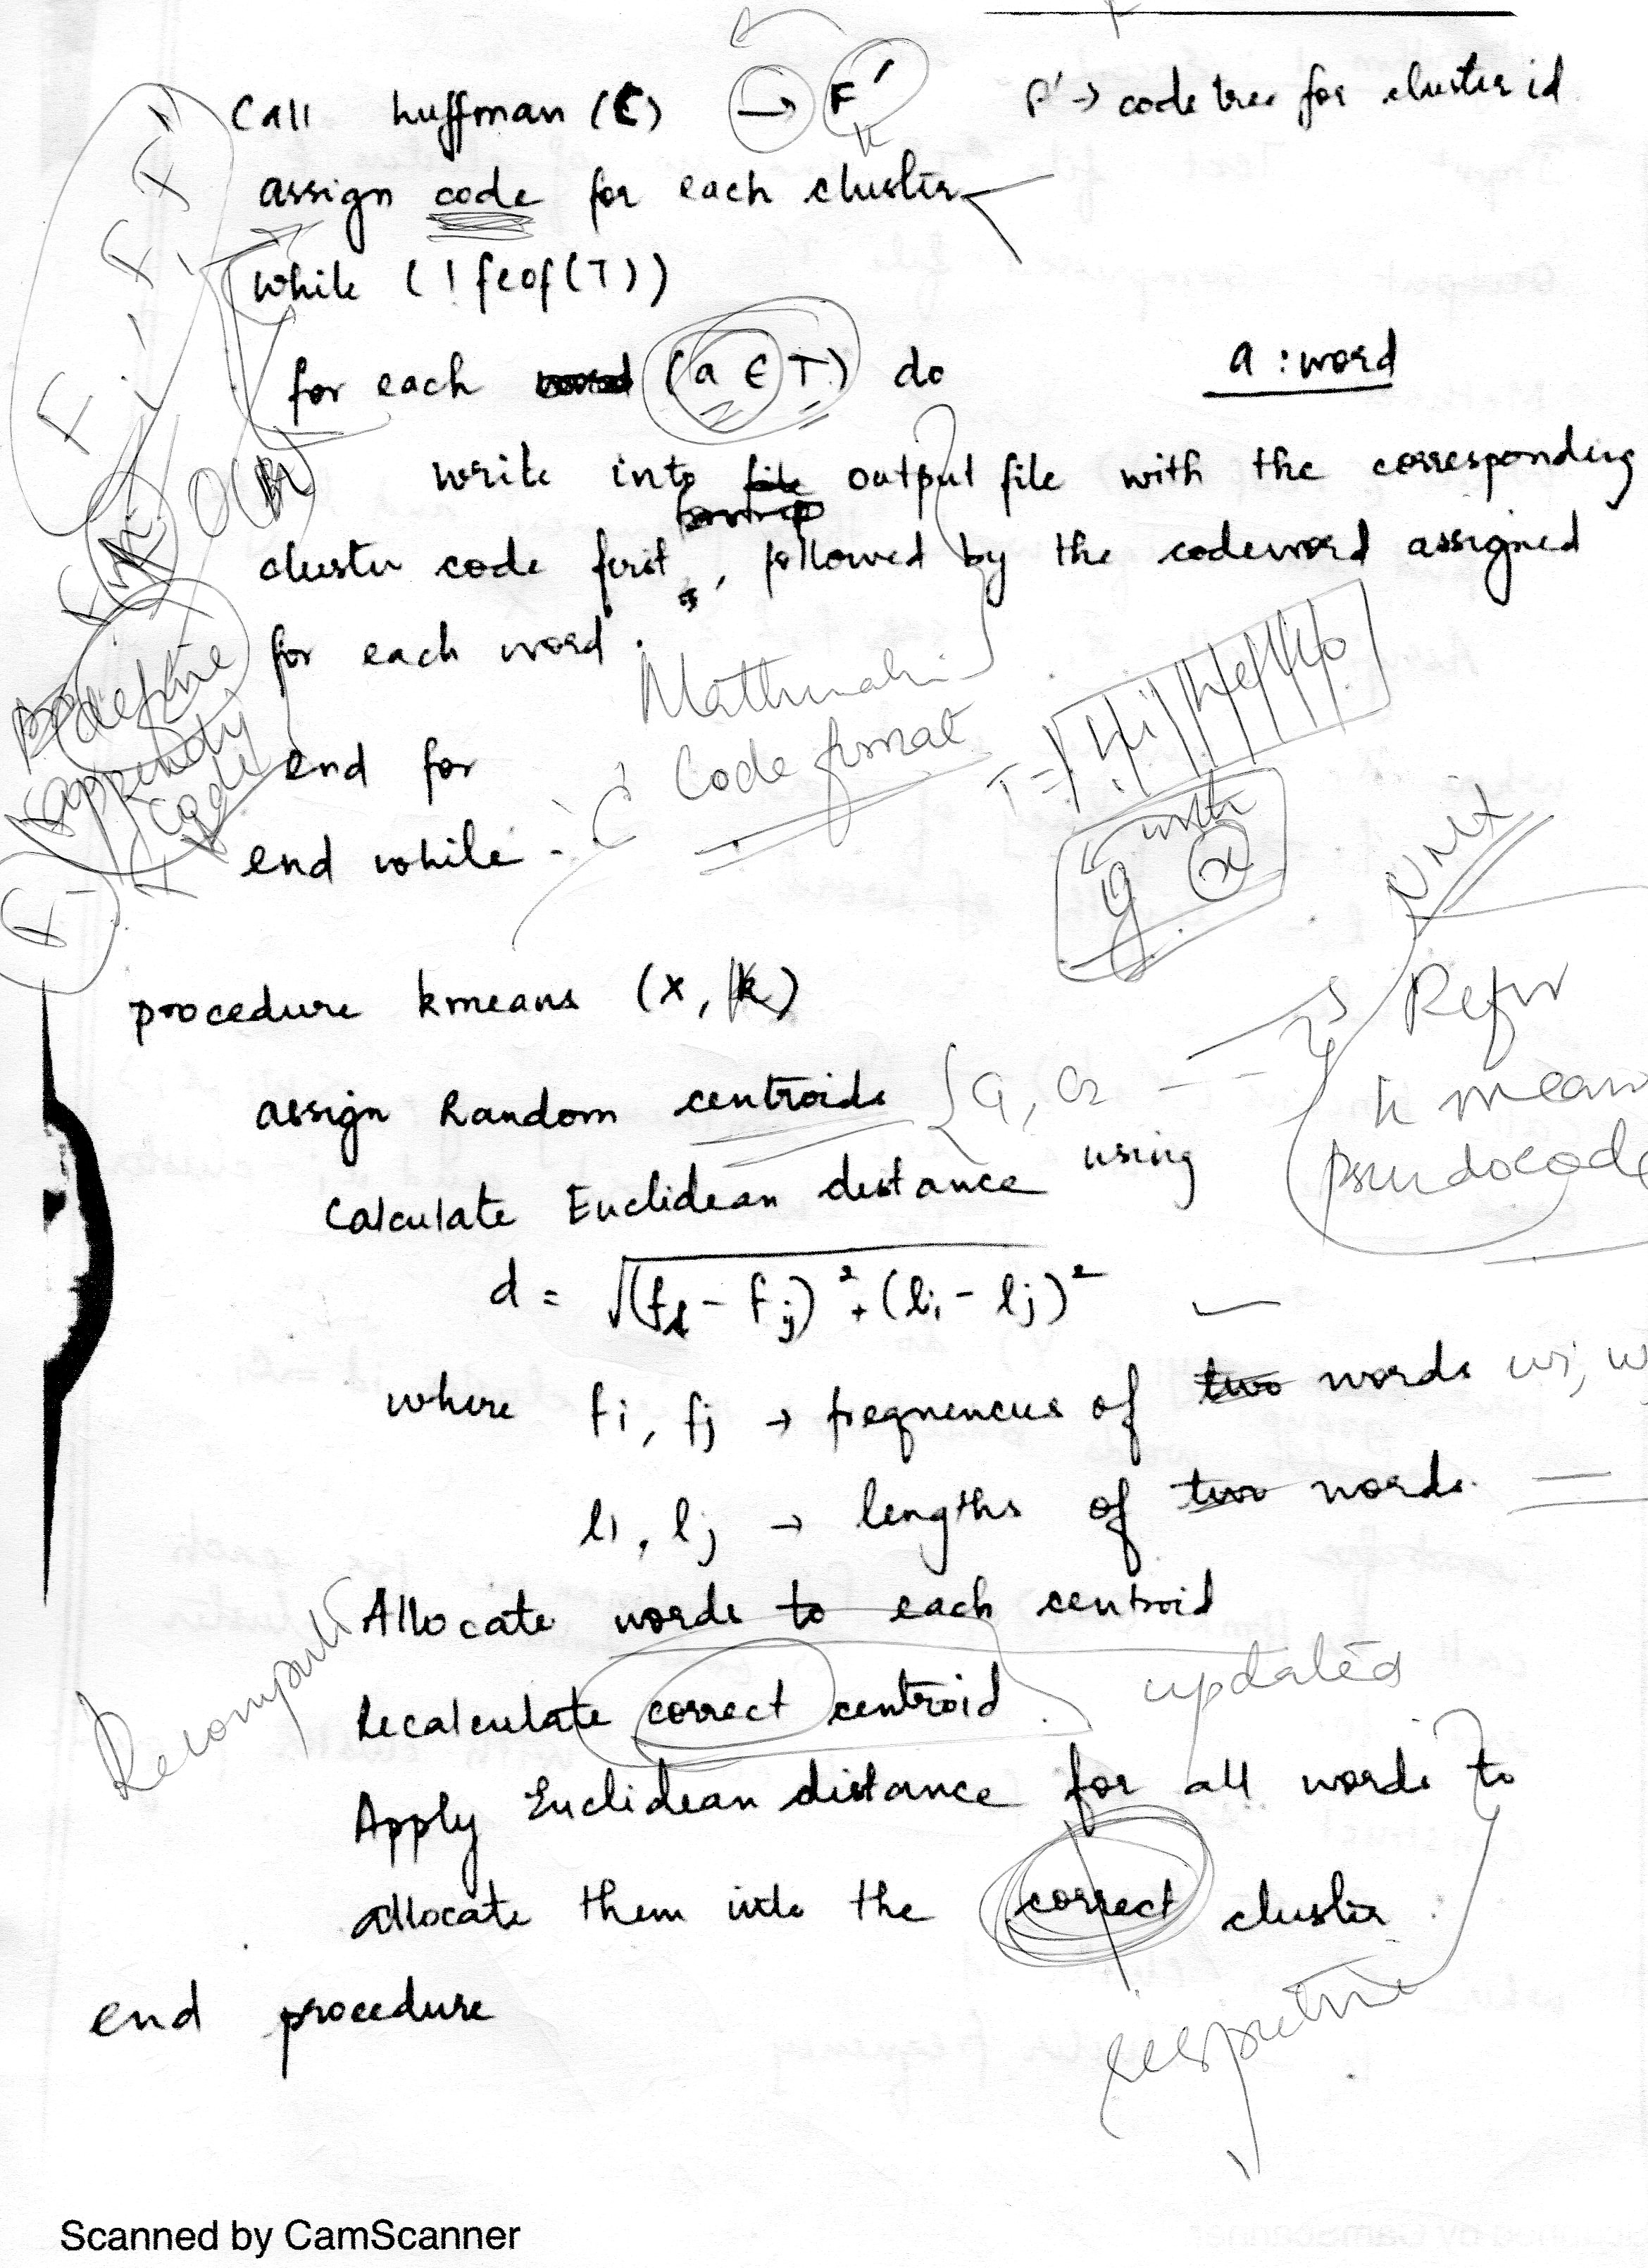 Call huffman (C) → F' F' → code tree for cluster id
assign code for each cluster
while (!feof(T))
for each (a ∈ T) do a : word
write into output file with the corresponding
cluster code first, followed by the codeword assigned
for each word.
Code format
define
code
end for
end while
with
x
procedure kmeans (x, k)
Refer
k mean
assign Random centroids {C1, C2 - - -
Calculate Euclidean distance using
d = √(fi - fj)² + (li - lj)²
where fi, fj → frequencies of two words wi, w
li, lj → lengths of two words.
Recompute
Allocate words to each centroid
Recalculate correct centroid. updated
Apply Euclidean distance for all words to
allocate them into the correct cluster.
respective
end procedure
Scanned by CamScanner